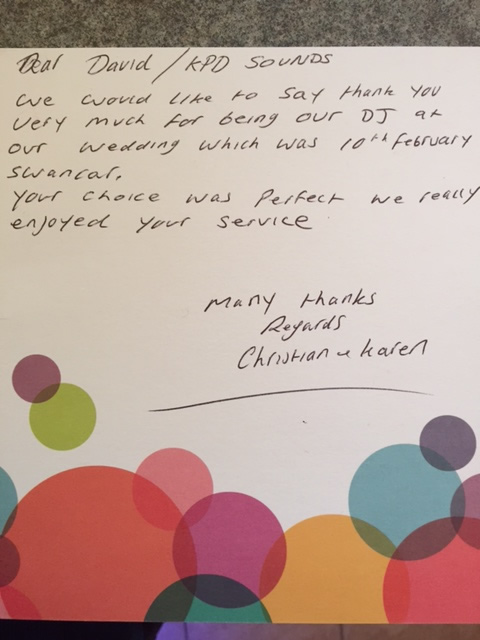 Dear David / KPD SOUNDS
we would like to say thank you
very much for being our DJ at
our wedding which was 10th February
swancar.
Your choice was perfect we really
enjoyed your service
Many thanks
Regards
Christian & Karen